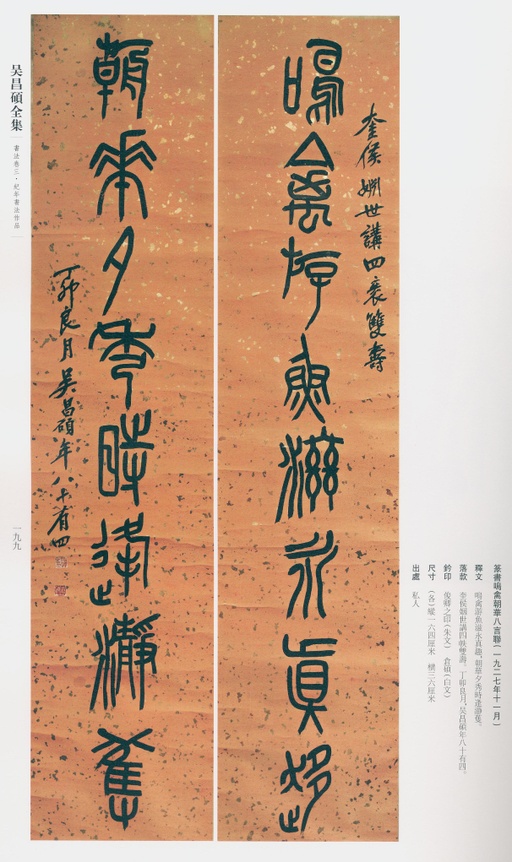 奎侯姻世講四袠雙壽
鳴禽游魚滋永真趣
朝華夕秀時逢瀞
丁卯良月吴昌碩年八十有四
吴昌碩全集
書法卷三·紀年書法作品
一九九
篆書鳴禽朝華八言聯(一九二七年十一月)
釋文 鳴禽游魚滋永真趣,朝華夕秀時逢瀞
落款 奎侯姻世講四帙雙壽。丁卯良月,吴昌碩年八十有四。
鈐印 俊卿之印(朱文) 倉碩(白文)
尺寸 (各)縱一六四厘米 横三六厘米
出處 私人